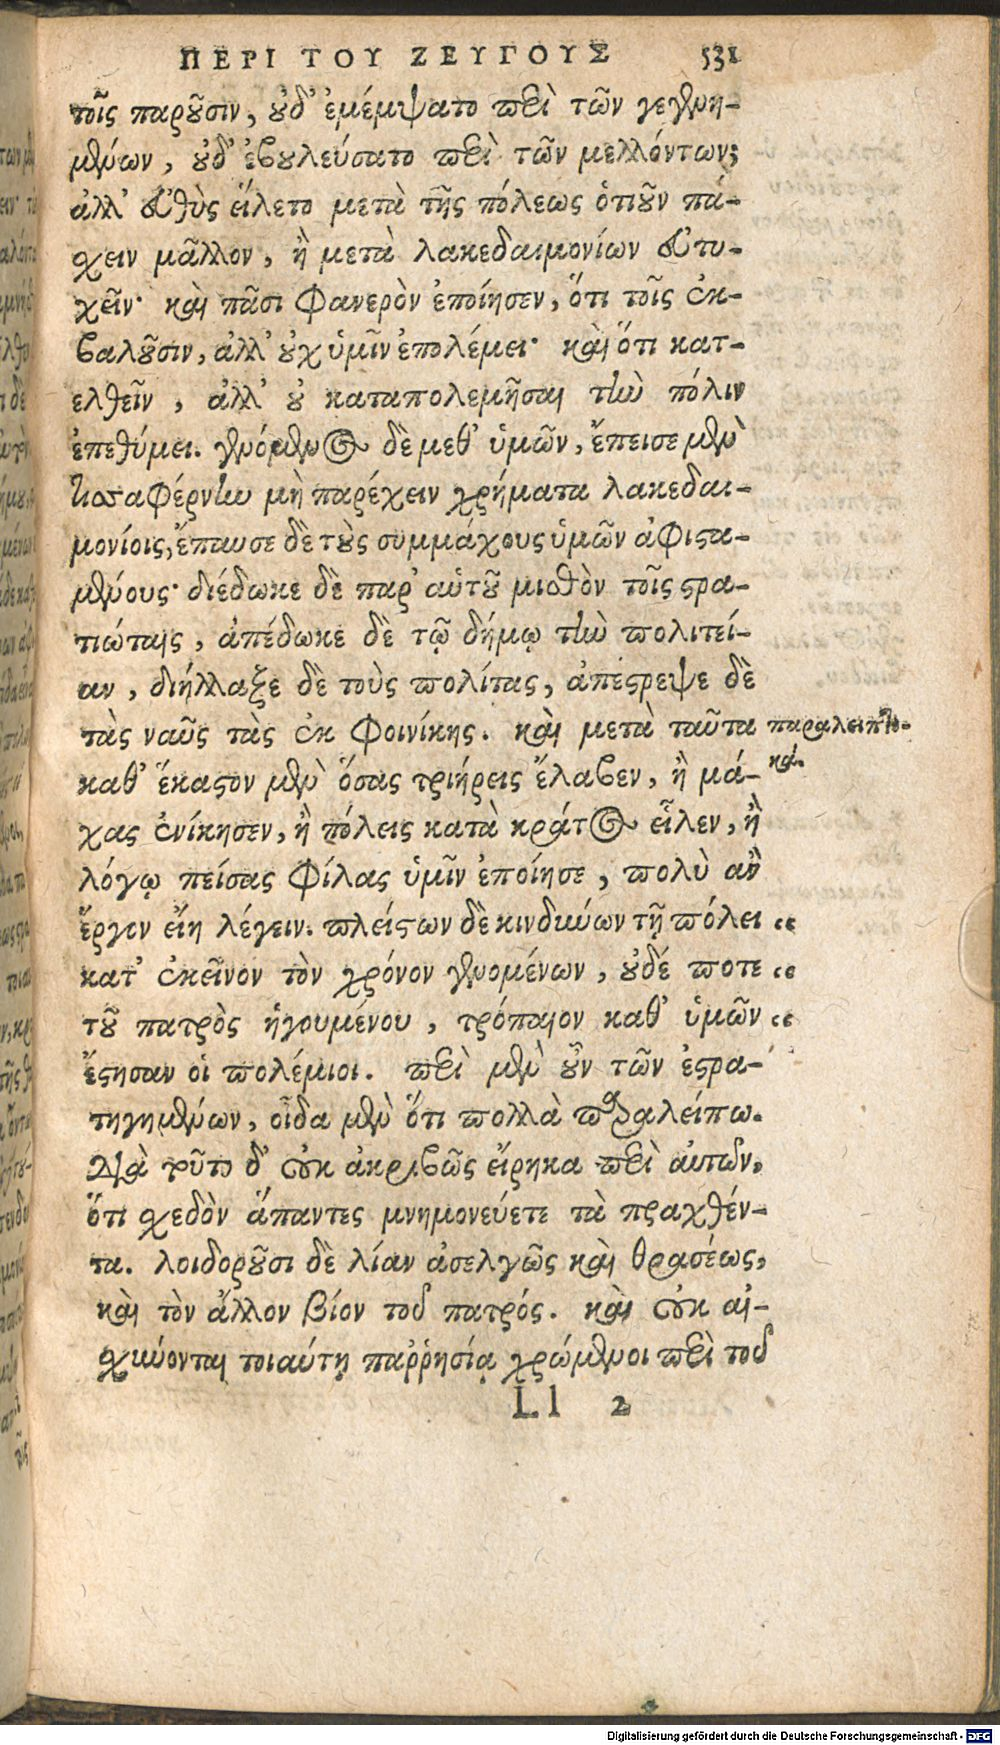 ΠΕΡΙ ΤΟΥ ΖΕΥΓΟΥΣ 531
τοῖς παροῦσιν, οὐδ' ἐμέμψατο περὶ τῶν γεγενη-
μένων, οὐδ' ἐβουλεύσατο περὶ τῶν μελλόντων;
ἀλλ' εὐθὺς εἵλετο μετὰ τῆς πόλεως ὁτιοῦν πά-
σχειν μᾶλλον, ἢ μετὰ λακεδαιμονίων εὐτυ-
χεῖν· καὶ πᾶσι φανερὸν ἐποίησεν, ὅτι τοῖς ἐκ-
βαλοῦσιν, ἀλλ' οὐχ ὑμῖν ἐπολέμει· καὶ ὅτι κατ-
ελθεῖν, ἀλλ' οὐ καταπολεμῆσαι τὴν πόλιν
ἐπεθύμει. γενόμενος δὲ μεθ' ὑμῶν, ἔπεισε μὲν
τισσαφέρνην μὴ παρέχειν χρήματα λακεδαι-
μονίοις, ἔπαυσε δὲ τοὺς συμμάχους ὑμῶν ἀφιστα-
μένους· διέδωκε δὲ παρ' αὑτοῦ μισθὸν τοῖς στρα-
τιώταις, ἀπέδωκε δὲ τῷ δήμῳ τὴν πολιτεί-
αν, διήλλαξε δὲ τοὺς πολίτας, ἀπέστρεψε δὲ
τὰς ναῦς τὰς ἐκ Φοινίκης. καὶ μετὰ ταῦτα
παραλειπτι-
κά.
καθ' ἕκαστον μὲν ὅσας τριήρεις ἔλαβεν, ἢ μά-
χας ἐνίκησεν, ἢ πόλεις κατὰ κράτος εἷλεν, ἢ
λόγῳ πείσας φίλας ὑμῖν ἐποίησε, πολὺ ἂν
ἔργον εἴη λέγειν. πλείστων δὲ κινδύνων τῇ πόλει “
κατ' ἐκεῖνον τὸν χρόνον γενομένων, οὐδέ ποτε “
τοῦ πατρὸς ἡγουμένου, τρόπαιον καθ' ὑμῶν “
ἔστησαν οἱ πολέμιοι. περὶ μὲν οὖν τῶν ἐστρα-
τηγημένων, οἶδα μὲν ὅτι πολλὰ παραλείπω.
Διὰ τοῦτο δ' οὐκ ἀκριβῶς εἴρηκα περὶ αὐτῶν,
ὅτι σχεδὸν ἅπαντες μνημονεύετε τὰ πραχθέν-
τα. λοιδοροῦσι δὲ λίαν ἀσελγῶς καὶ θρασέως,
καὶ τὸν ἄλλον βίον τοῦ πατρός. καὶ οὐκ αἰ-
σχύνονται τοιαύτῃ παῤῥησίᾳ χρώμενοι περὶ τοῦ
Ll 2
Digitalisierung gefördert durch die Deutsche Forschungsgemeinschaft - DFG